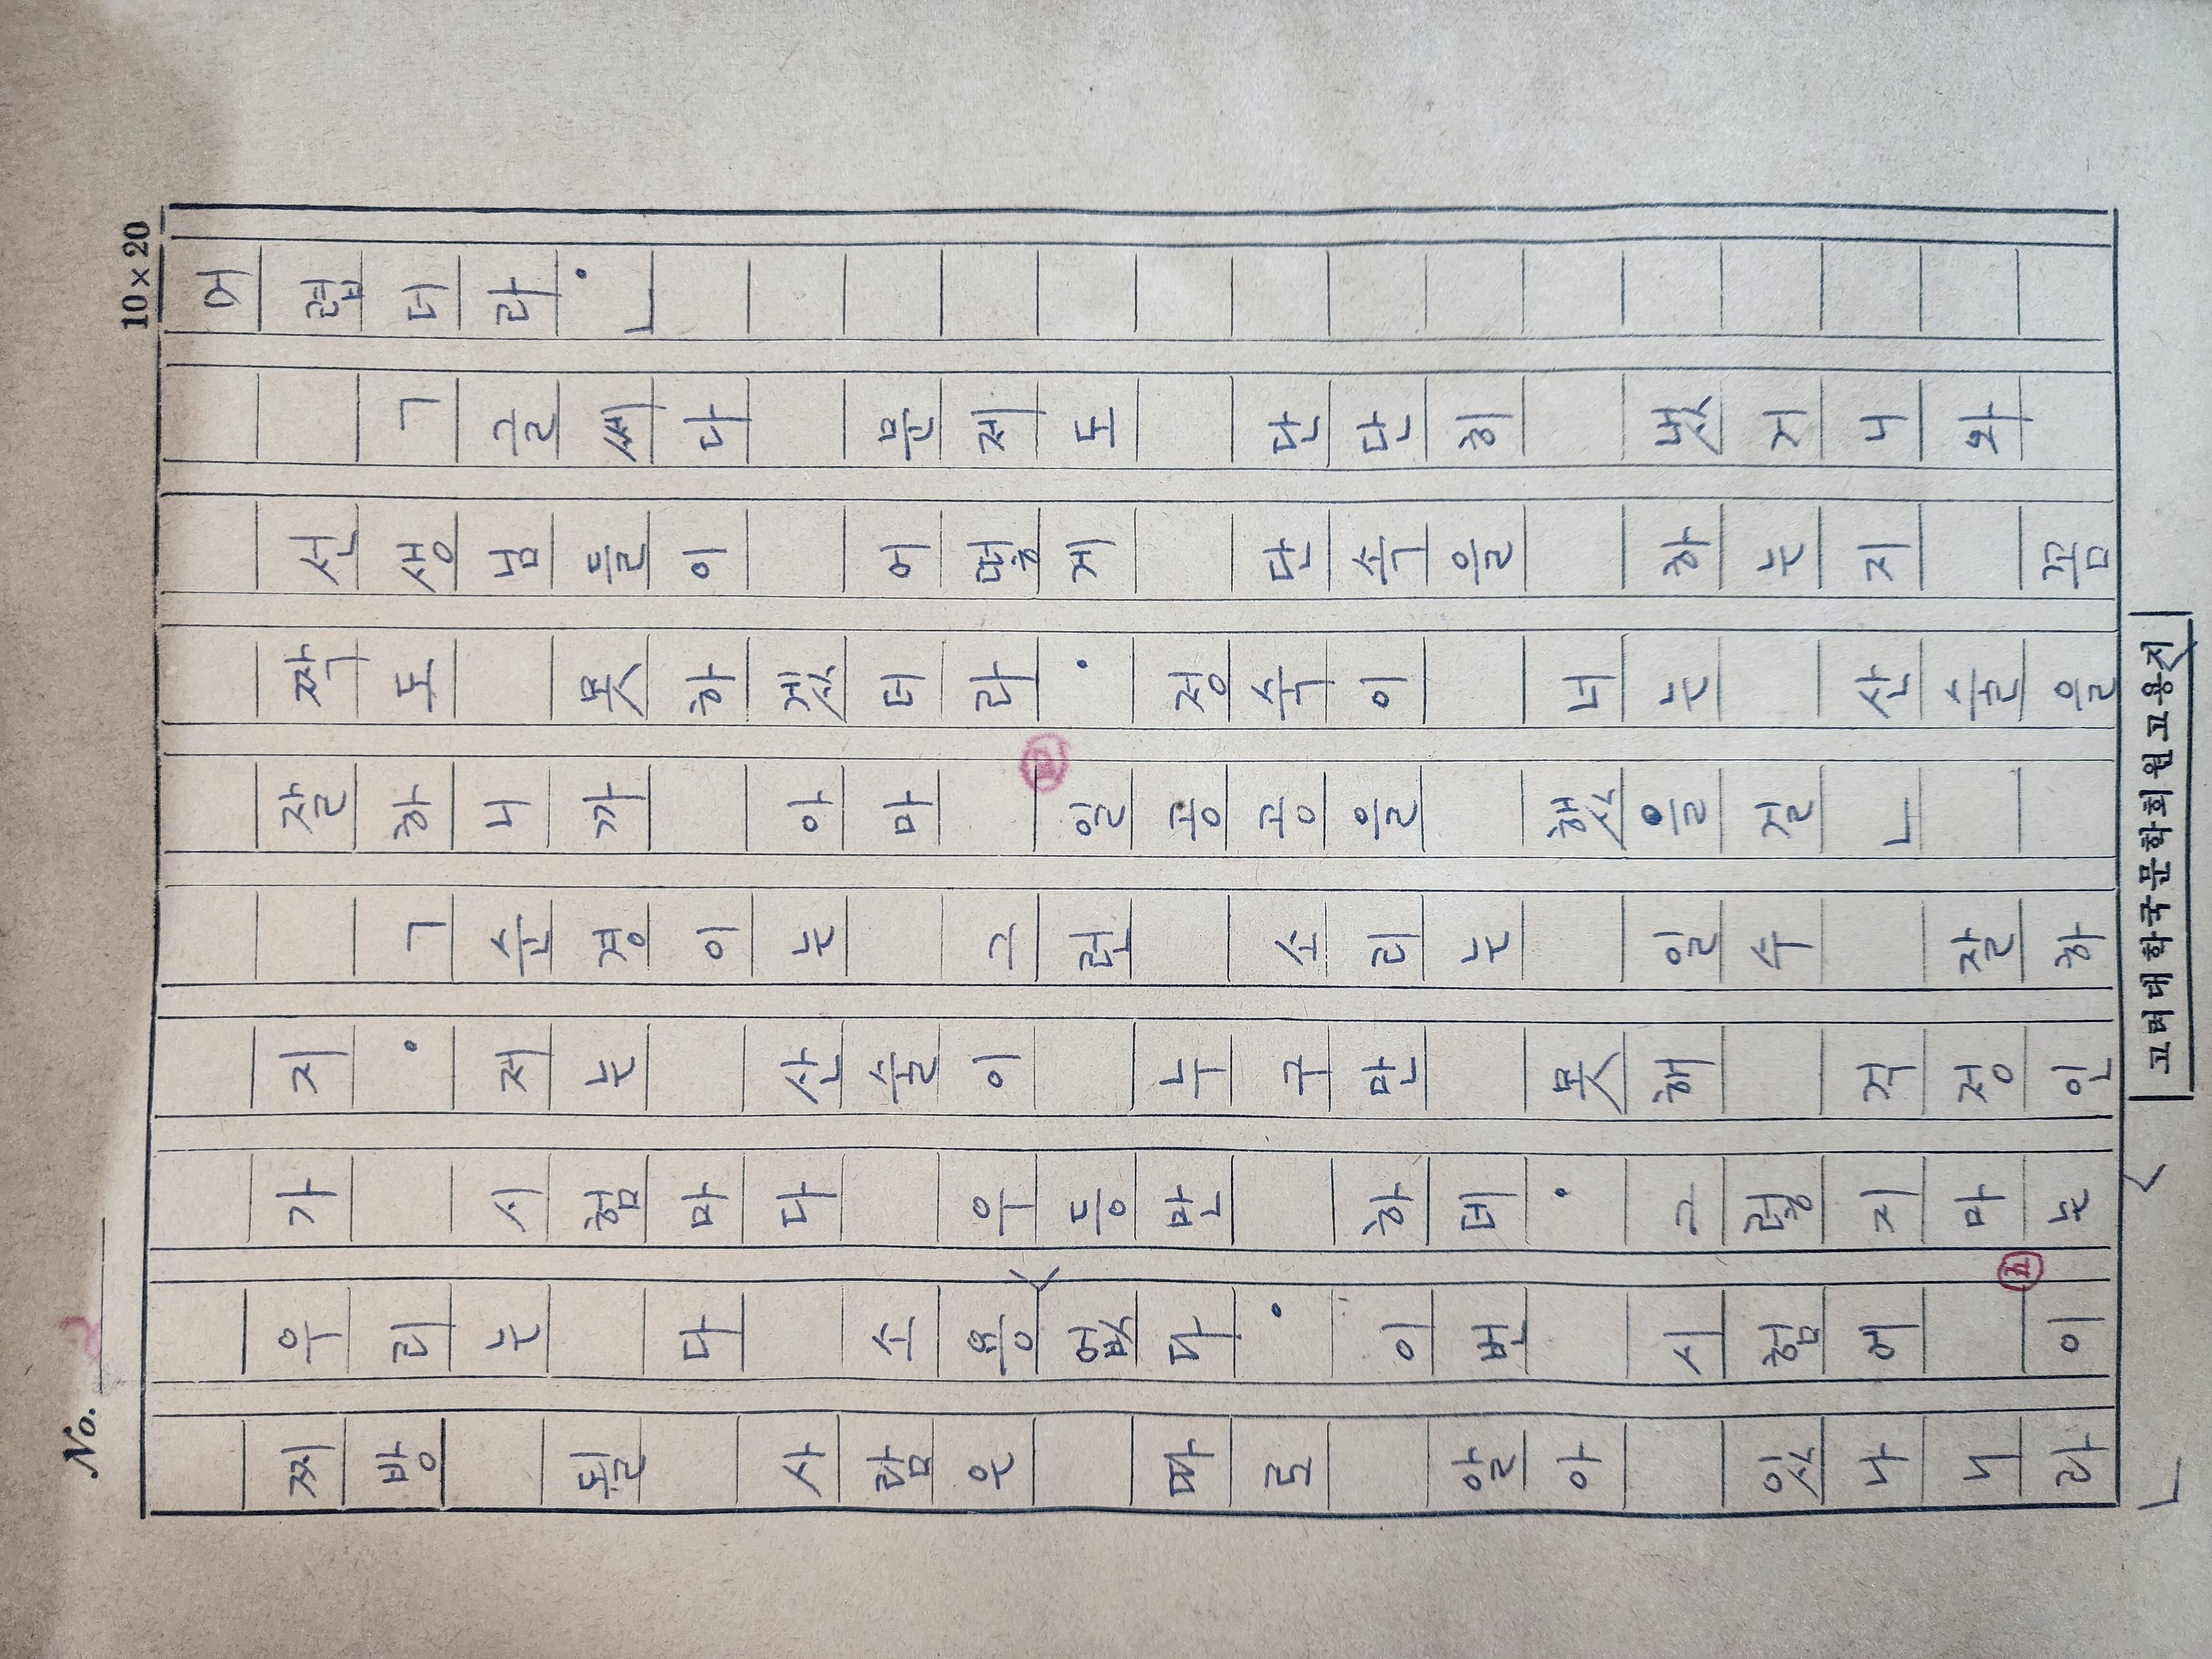 10×20
어렵더라.」
「글쎄다 문제도 단단히 냈거니와
선생님들이 어떻게 단속을 하는지 꼼
짝도 못하겠더라. 정숙이 너는 산술을
잘하니까 아마 일공공을 했을걸」
「순경이는 그런 소리는 일수 잘하
지. 저는 산술이 누구만 못해 걱정인
가 시험마다 우등만 하데. 그렇지마는
우리는 다 소용없다. 이번 시험에 이
찌방 될 사람은 따로 알아 있나니라」
No.
고려대학국문학회원고용지